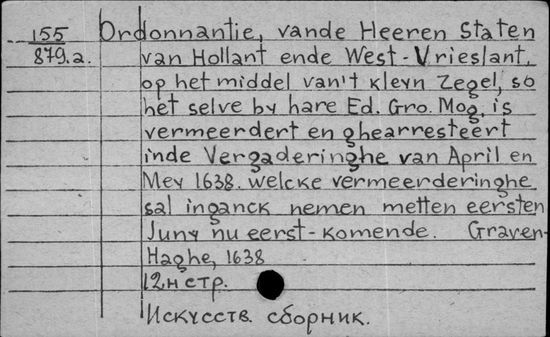 155 Ordonnantie, vande Heeren Staten
879.a. van Hollant ende West-Vrieslant,
op het middel van't kleyn Zegel, so
het selve by hare Ed. Gro. Mog. is
vermeerdert en ghearresteert
inde Vergaderinghe van April en
Mey 1638. welcke vermeerderinghe
sal inganck nemen metten eersten
Juny nu eerst-komende. Graven-
Haghe, 1638
12 н стр.
Искусств. сборник.